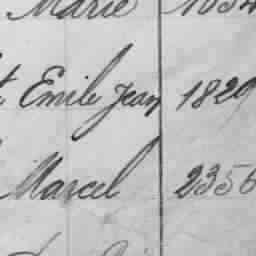 Marie 1034
Emile Jean 1829
Marcel 2356